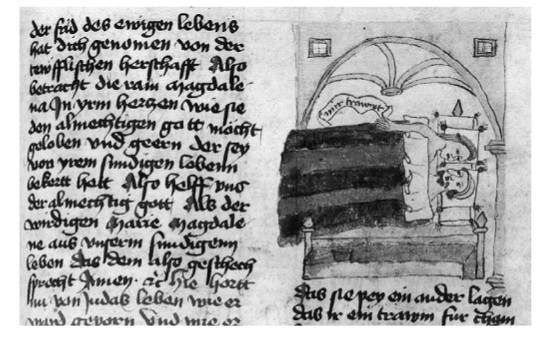 der frid des ewigen lebens
hat dich genomen von der
tewfflischen herschafft Also
betracht die rain magdale
na Jn yrm hertzen wie sie
den almechtigen gott möcht
geloben vnd geern der sey
von yrem sundigen lebenn
bekertt hett Also helff vns
der almechtig gott Als der
wirdigen Marie magdale
ne aus vnserm sundigenn
leben das dem also geschech
sprecht Amen. Hie hortt
nu von Judas leben wie er
ward geporn vnd wie er
mir trawmt
das sie pey ein ander lagen
das ir ein trawm fur cham